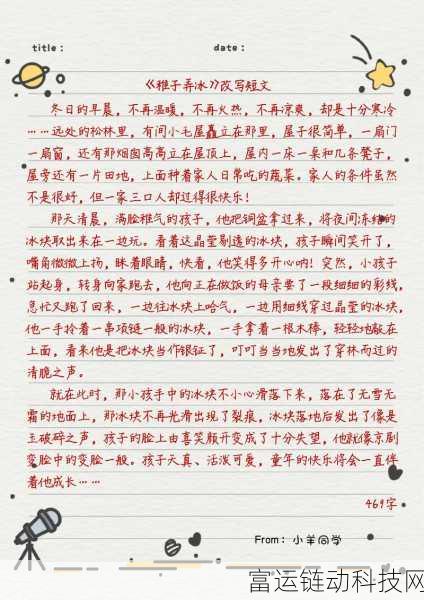 title： date：
《稚子弄冰》改写短文
冬日的早晨，不再温暖，不再火热，不再凉爽，却是十分寒冷
……远处的松林里，有间小毛屋矗立在那里，屋子很简单，一扇门
一扇窗，还有那烟囱高高立在屋顶上，屋内一床一桌和几条凳子，
屋旁还有一片田地，上面种着家人日常吃的蔬菜。家人的条件虽然
不是很好，但一家三口人却过得很快乐！
那天清晨，满脸稚气的孩子，他把铜盆拿过来，将夜间冻结的
冰块取出来在一边玩。看着这晶莹剔透的冰块，孩子瞬间笑开了，
嘴角微微上扬，眯着眼睛，快看，他笑得多开心呐！突然，小孩子
站起身，转身向家跑去，他向正在做饭的母亲要了一段细细的彩线，
急忙又跑了回来，一边往冰块上哈气，一边用细线穿过晶莹的冰块，
他一手拎着一串项链一般的冰块，一手拿着一根木棒，轻轻地敲在
上面，看来他是把冰块当作银钲了，叮叮当当地发出了穿林而过的
清脆之声。
就在此时，那小孩手中的冰块不小心滑落下来，落在了无雪无
霜的地面上，那冰块不再光滑出现了裂痕，冰块落地后发出了像是
玉破碎之声，孩子的脸上由喜笑颜开变成了十分失望，他就像京剧
变脸中的变脸一般。孩子天真、活泼可爱，童年的快乐将会一直伴
着他成长……
469字
From：小羊同学
富运链动科技网